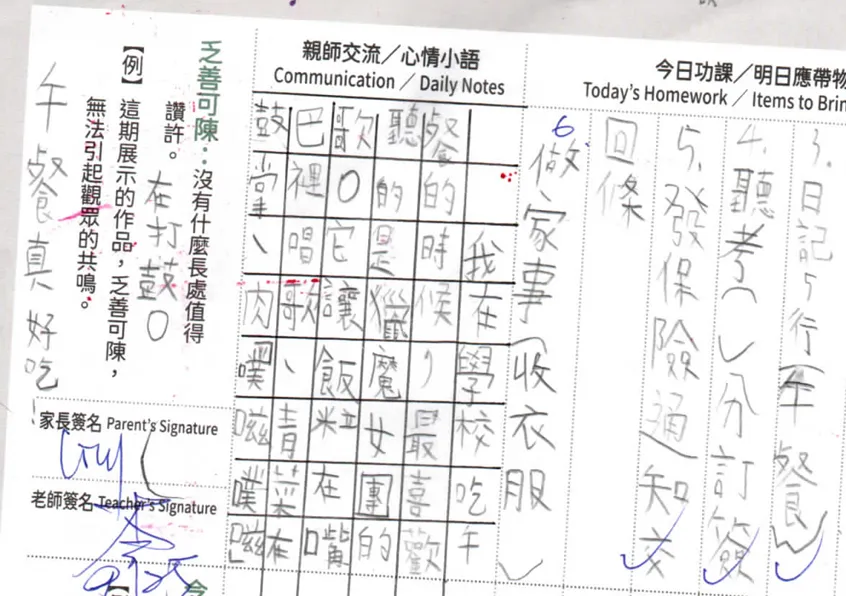 今日功課／明日應帶物
Today's Homework / Items to Brin
3.日記5行(午餐)
4.聽考( )分訂簽
5.發保險通知交
回條
6.做家事(收衣服
親師交流／心情小語
Communication / Daily Notes
我在學校吃午
餐的時候，最喜歡
聽的是獵魔女團的
歌。它讓飯粒在嘴
巴裡唱歌、青菜在
鼓掌、肉噗嗞噗嗞
在打鼓。
午餐真好吃！
乏善可陳：沒有什麼長處值得
讚許。
【例】這期展示的作品，乏善可陳，
無法引起觀眾的共鳴。
家長簽名 Parent's Signature
老師簽名 Teacher's Signature